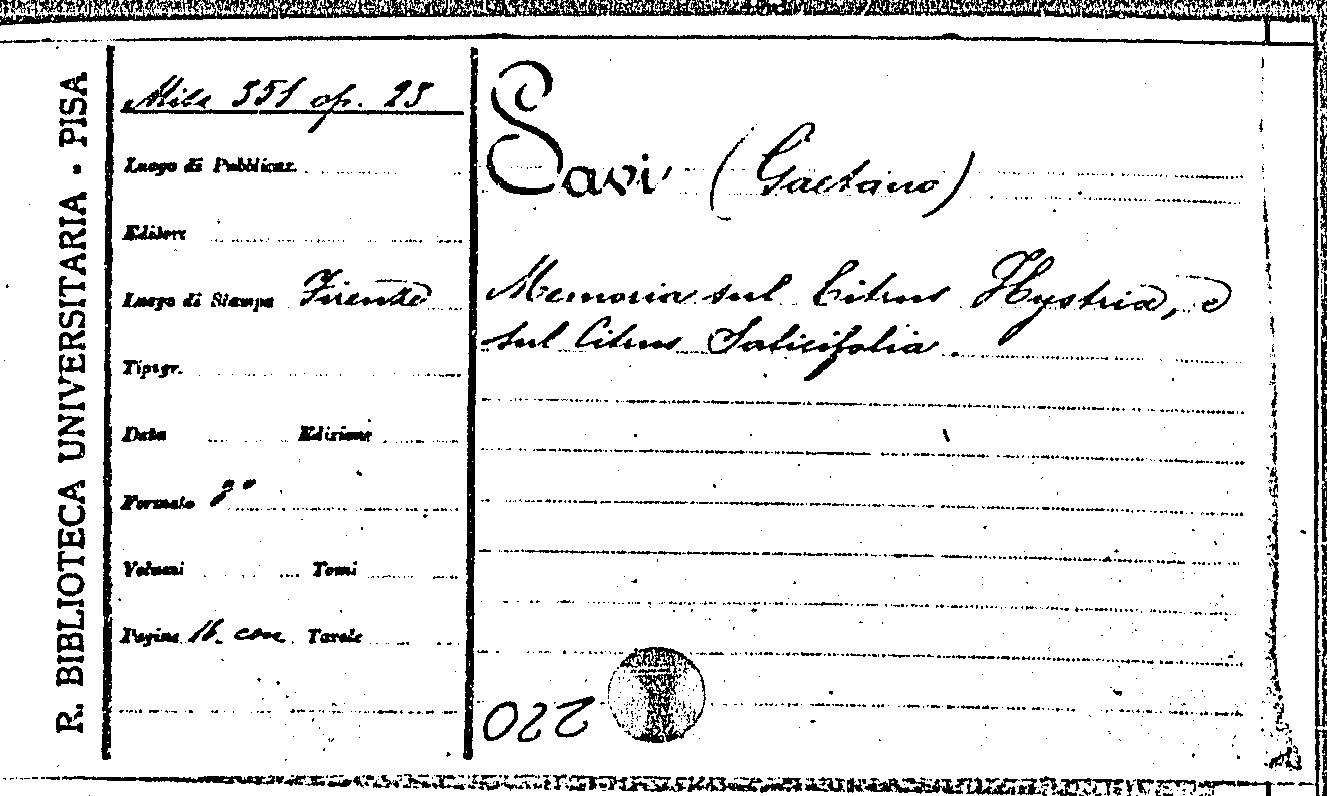 R. BIBLIOTECA UNIVERSITARIA - PISA
Misc 351 op. 23
Luogo di Pubblicaz.
Editore
Luogo di Stampa Firenze
Tipogr.
Data Edizione
Formato 8°
Volumi Tomi
Pagine 16. con Tavole
Savi (Gaetano)
Memoria sul Citrus Hystrix, e
sul Citrus Salicifolia.
220